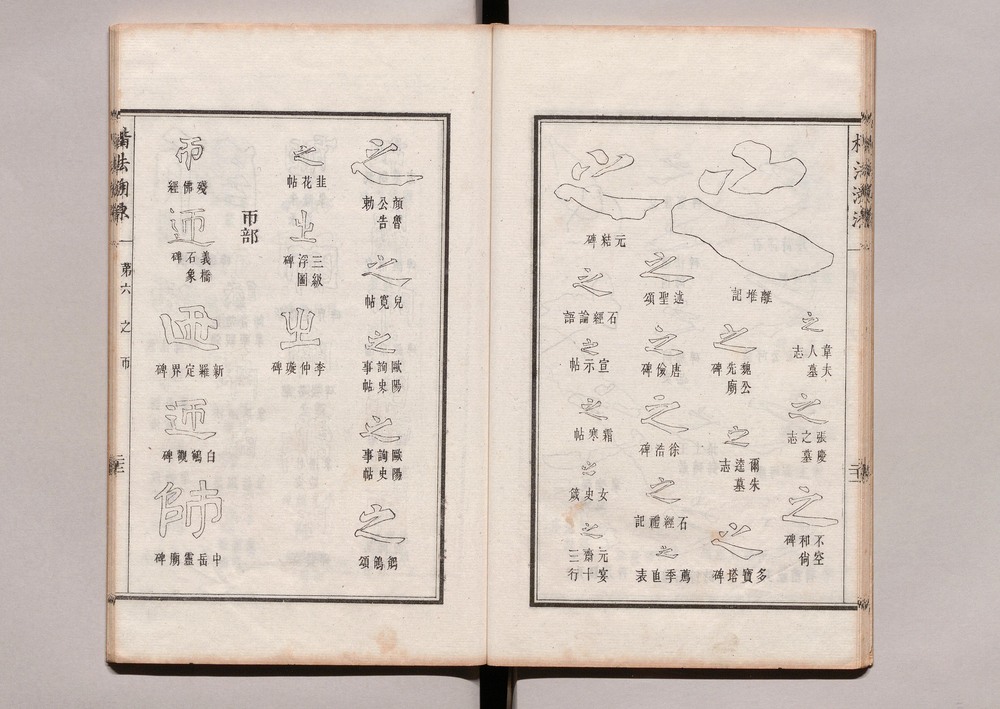 之
離堆記
之
韋夫人墓志
之
張慶之墓志
之
不空和尙碑
之
魏公先廟碑
之
爾朱逵墓志
之
多寶塔碑
之
元結碑
之
述聖頌
之
唐儉碑
之
徐浩碑
之
石經禮記
之
薦季直表
之
石經論語
之
宣示帖
之
霜寒帖
之
女史箴
之
元宴齋三十行
之
顔魯公告勅
之
兒寬帖
之
歐陽詢史事帖
之
歐陽詢史事帖
之
鶺鴒頌
之
韭花帖
㞢
三級浮圖碑
㞢
李仲璇碑
帀部
帀
殘佛經
迊
義橋石象碑
新羅定界碑
迊
白鶴觀碑
師
中岳靈廟碑
楷法溯源
第六
之
帀